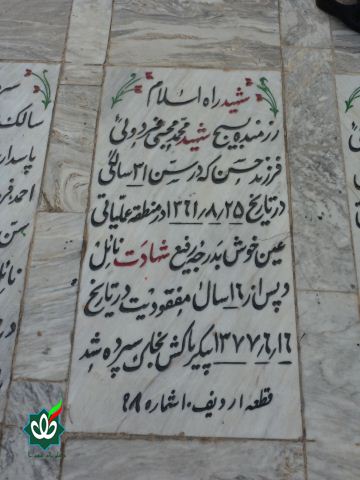 شهید راه اسلام
رزمنده بسیج شهید محمد مجتبی
فرزند حسن که در سن ۳۱ سالگی
در تاریخ ۱۳۶۱٫۸٫۲۵ در منطقه عملیاتی
عین خوش بدرجه رفیع شهادت نائل
و پس از ۱۶ سال مفقودیت در تاریخ
۱۳۷۷٫۶٫۱۶ پیکر پاکش بخاک سپرده شد
قطعه ۱ ردیف ۱۰ شماره